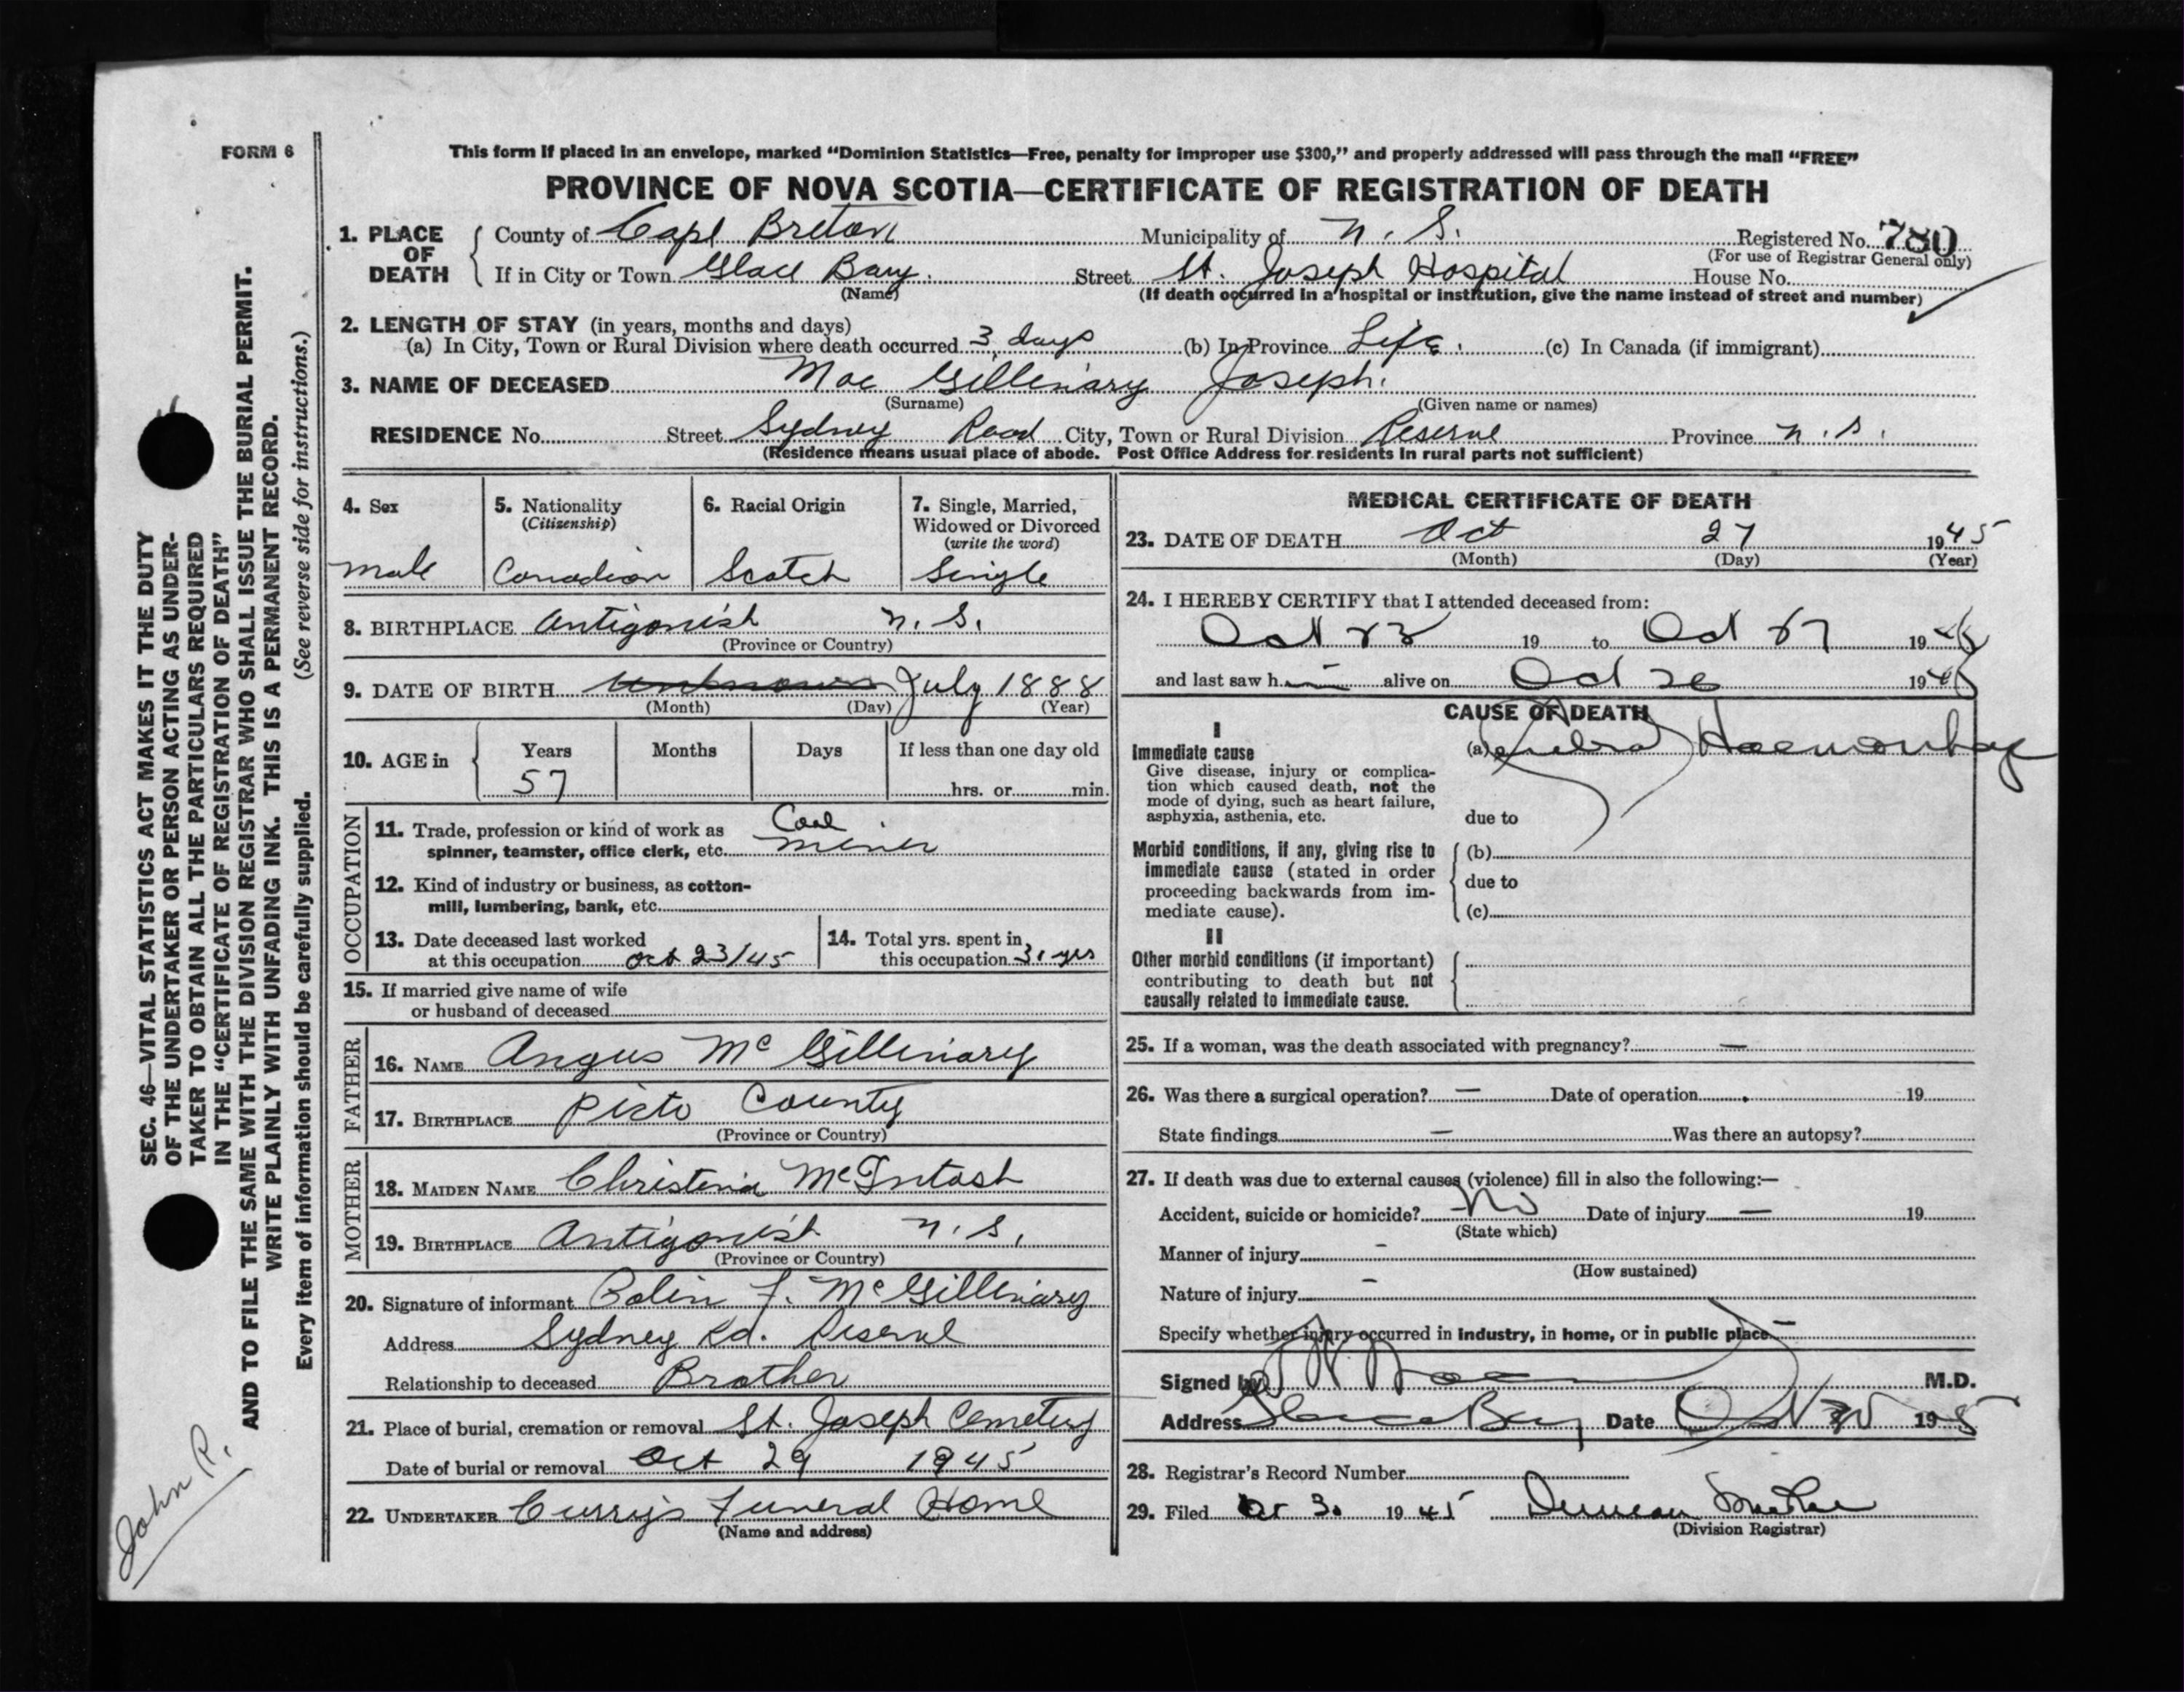 FORM 6
This form if placed in an envelope, marked "Dominion Statistics—Free, penalty for improper use $300," and properly addressed will pass through the mail "FREE"
PROVINCE OF NOVA SCOTIA—CERTIFICATE OF REGISTRATION OF DEATH
1. PLACE OF DEATH County of Cape Breton Municipality of N. S. Registered No. 780
(For use of Registrar General only)
If in City or Town Glace Bay. Street St. Joseph Hospital House No.
(Name) (If death occurred in a hospital or institution, give the name instead of street and number)
2. LENGTH OF STAY (in years, months and days)
(a) In City, Town or Rural Division where death occurred 3 days (b) In Province Life. (c) In Canada (if immigrant)
3. NAME OF DECEASED Mac Gillivary Joseph.
(Surname) (Given name or names)
RESIDENCE No. Street Sydney Road City, Town or Rural Division Reserve Province N. S.
(Residence means usual place of abode. Post Office Address for residents in rural parts not sufficient)
4. Sex 5. Nationality 6. Racial Origin 7. Single, Married,
(Citizenship) Widowed or Divorced
(write the word)
Male Canadian Scotch Single
8. BIRTHPLACE Antigonish N. S.
(Province or Country)
9. DATE OF BIRTH Unknown July 1888
(Month) (Day) (Year)
10. AGE in Years Months Days If less than one day old
57 hrs. or min.
OCCUPATION
11. Trade, profession or kind of work as Coal
spinner, teamster, office clerk, etc. miner
12. Kind of industry or business, as cotton-
mill, lumbering, bank, etc.
13. Date deceased last worked 14. Total yrs. spent in
at this occupation Oct 23/45 this occupation 31 yrs
15. If married give name of wife
or husband of deceased
FATHER
16. NAME Angus Mc Gillivary
17. BIRTHPLACE Picto County
(Province or Country)
MOTHER
18. MAIDEN NAME Christena McIntosh
19. BIRTHPLACE Antigonish N. S.
(Province or Country)
20. Signature of informant Colin F. McGillivary
Address Sydney Rd. Reserve
Relationship to deceased Brother
21. Place of burial, cremation or removal St. Joseph Cemetery
Date of burial or removal Oct 29 1945
22. UNDERTAKER Curry's Funeral Home
(Name and address)
MEDICAL CERTIFICATE OF DEATH
23. DATE OF DEATH Oct 27 1945
(Month) (Day) (Year)
24. I HEREBY CERTIFY that I attended deceased from:
Oct 23 19 to Oct 27 1945
and last saw h alive on Oct 26 1945
CAUSE OF DEATH
I
Immediate cause (a) Cerebral Haemorrhage
Give disease, injury or complica-
tion which caused death, not the
mode of dying, such as heart failure,
asphyxia, asthenia, etc. due to
Morbid conditions, if any, giving rise to (b)
immediate cause (stated in order
proceeding backwards from im- due to
mediate cause). (c)
II
Other morbid conditions (if important)
contributing to death but not
causally related to immediate cause.
25. If a woman, was the death associated with pregnancy? —
26. Was there a surgical operation? — Date of operation 19
State findings — Was there an autopsy?
27. If death was due to external causes (violence) fill in also the following:—
Accident, suicide or homicide? No Date of injury — 19
(State which)
Manner of injury -
(How sustained)
Nature of injury -
Specify whether injury occurred in industry, in home, or in public place -
Signed by M.D.
Address Glace Bay Date Oct 1945
28. Registrar's Record Number
29. Filed Oct 30 1945 Duncan
(Division Registrar)
SEC. 46—VITAL STATISTICS ACT MAKES IT THE DUTY
OF THE UNDERTAKER OR PERSON ACTING AS UNDER-
TAKER TO OBTAIN ALL THE PARTICULARS REQUIRED
IN THE "CERTIFICATE OF REGISTRATION OF DEATH"
AND TO FILE THE SAME WITH THE DIVISION REGISTRAR WHO SHALL ISSUE THE BURIAL PERMIT.
WRITE PLAINLY WITH UNFADING INK. THIS IS A PERMANENT RECORD.
Every item of information should be carefully supplied. (See reverse side for instructions.)
John R.